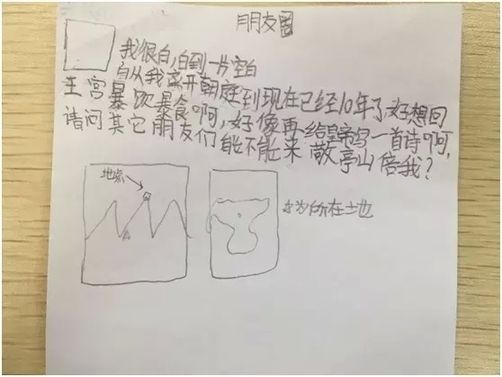 朋友圈
我很白,白到一片空白
自从我离开朝庭到现在已经10年了,好想回
王宫暴饮暴食啊,好像再给皇帝写一首诗啊,
请问其它朋友们能不能来敬亭山陪我?
地标
为所在地